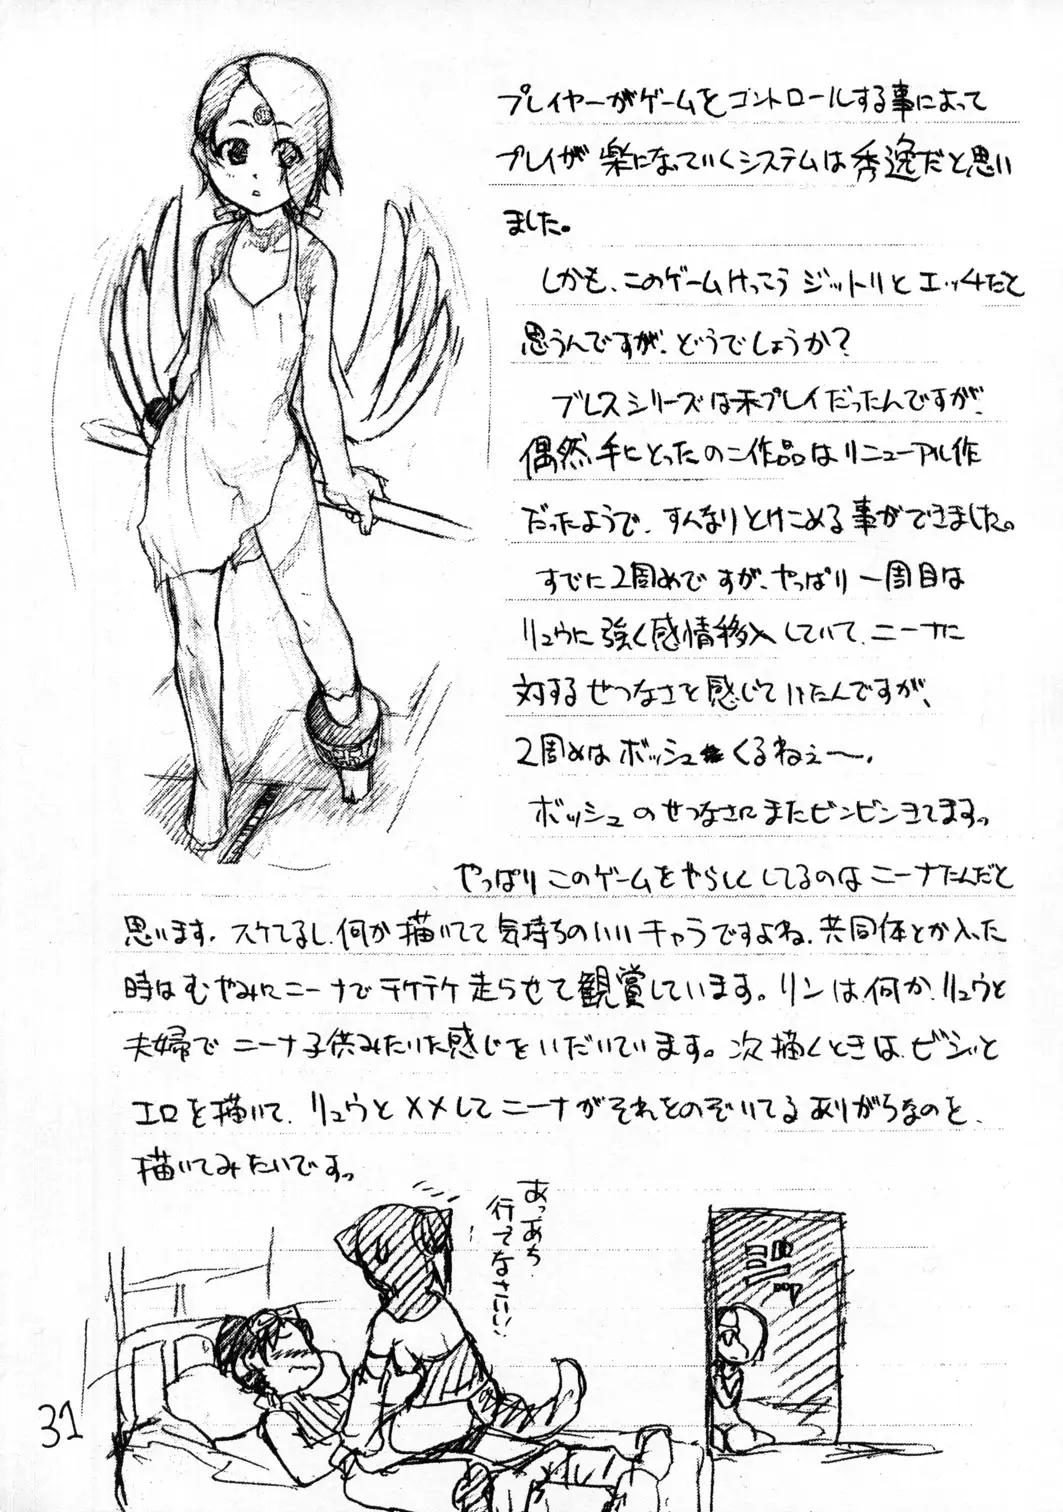 プレイヤーがゲームをコントロールする事によって
プレイが楽になっていくシステムは秀逸だと思い
ました。
しかも、このゲームけっこうジットリとエッチだと
思うんですが、どうでしょうか?
ブレスシリーズは未プレイだったんですが、
偶然手にとったのこ作品はリニューアル作
だったようで、すんなりとけこめる事ができました。
すでに2周めですが、やっぱり一周目は
リュウに強く感情移入していて、ニーナに
対するせつなさを感じていたんですが、
2周めはボッシュ くるねぇ〜。
ボッシュのせつなさにまたビンビンきてますっ
やっぱりこのゲームをやらしくしてるのはニーナたんだと
思います。スケてるし、何か描いてて気持ちのいいキャラですよね、共同体とか入った
時はむやみにニーナでテケテケ走らせて観賞しています。リンは何か、リュウと
夫婦でニーナ子供みたいな感じをいだいています。次描くときは、ビシッと
エロを描いて、リュウとメメしてニーナがそれをのぞいてるありがちなのを、
描いてみたいですっ
あっあち
行てなさい!!
31